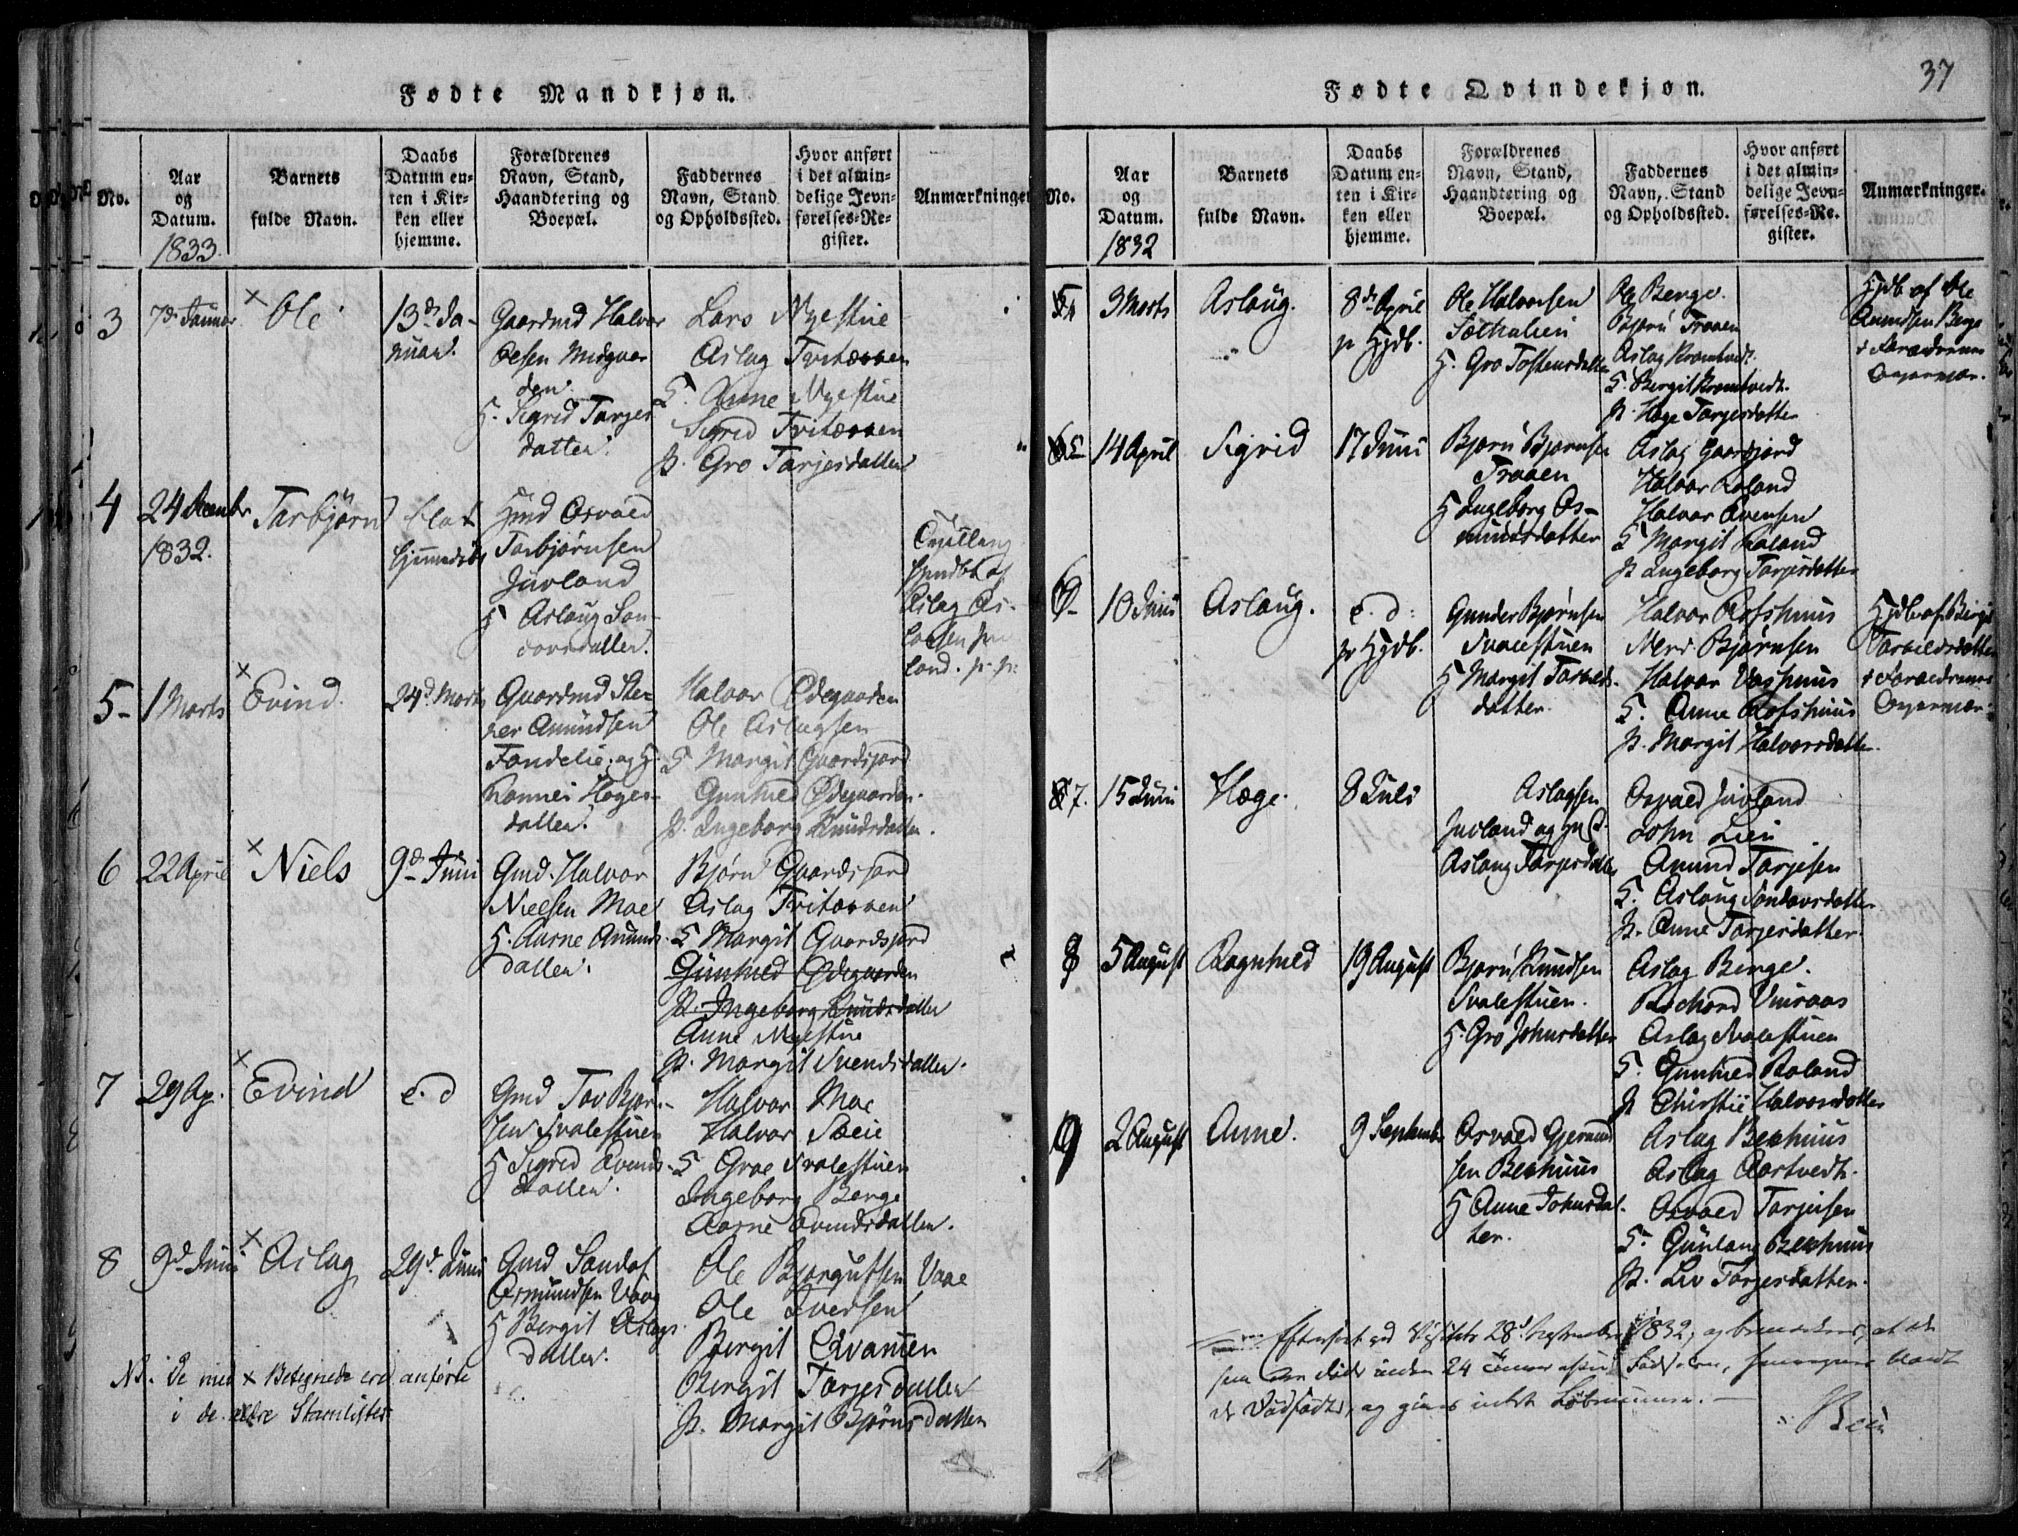 Fødte Mandkjøn.
No.
Aar
og
Datum.
1833.
Barnets
fulde Navn.
Daabs
Datum en-
ten i Kir-
ken eller
hjemme.
Forældrenes
Navn, Stand,
Haandtering og
Boepæl.
Faddernes
Navn, Stand
og Opholdssted.
Hvor anført
i det almin-
delige Jevn-
førelses-Re-
gister.
Anmærkninger
3
7d. Januar
Ole
13de Ja-
nuar.
Gaardmd Halvor
Olsen Midgaar
den.
H. Sigrid Tarjes
datter.
Lars Nyestue
Aslag Tvitæven
H. Anne Nyestue
Sigrid Tvitæven
P. Gro Tarjesdatter
4
24 Decembr
1832.
Tarbjørn
Gmd Osvald
Tarbjørnsen
Juvland
H Aslaug Son-
dovsdatter.
Aslag As-
laksen Juv
land. p. p.
5
1 Marts
Evind.
24d. Marts
Gaardmd Ste-
ner Amundsen
Tondelie, og H.
Hæges-
datter.
Halvor Ødegaarden
Ole Aslagsen
H Margit Gaardsjord
Gunhild Ødegaarden.
P. Ingeborg Knudsdatter.
6
22 April
Niels
9de Juni
Gmd. Halvor
Nielsen Moe
H. Aarne Amunds
datter.
Bjørn Gaardsjord
Aslag Tvitæven
H Margit Gaardsjord
Gunhild Ødegaarden
P. Ingeborg Knudsdatter
Anne Nyestue
P. Margit Svendsdatter.
7
29 Ap.
Evind
e. d
Gmd Tov Bjørn-
sen Svalestuen
H Sigrid Evinds
datter.
Halvor Moe
Halvor Sælie
H Groe Svalestuen
Ingeborg Berge
Aarne Evindsdatter.
8
9d. Juni
Aslag
29d. Juni
Gmd Sondof
Asmundsen Vaag
H Bergit Aslags
datter.
Ole Bjørgufsen Vaae
Ole Iversen
Bergit Qvannen
Bergit Tarjesdatter
P. Margit Bjørnsdatter
NB. De med x Betegnede ere anførte
i de ældre Stamlister
Fødte Qvindekjøn.
37
No.
Aar
og
Datum.
1832
Barnets
fulde Navn.
Daabs
Datum en-
ten i Kir-
ken eller
hjemme.
Forældrenes
Navn, Stand,
Haandtering og
Boepæl.
Faddernes
Navn, Stand
og Opholdssted.
Hvor anført
i det almin-
delige Jevn-
førelses-Re-
gister.
Anmærkninger.
4
3 Marts
Aslaug.
8de April
pr Hjdb.
Ole Halvorsen
H. Gro Tostensdatter
Ole Berge.
Bjørn Traaen
Aslag Kromtvedt.
H. Bergit Kromtvedt.
P. Hæge Tarjesdatter
Hjdb. af Ole
Amundsen Berge
i Forældrenes
5
14 April
Sigrid
17 Juni
Bjørn Bjørnsen
Traaen
H Ingeborg Os-
mundsdatter
Aslag Gaarsjord
Halvor Roland
Halvor Evensen
H Margit Roland
P. Ingeborg Tarjesdatter
6
10 Juni
Aslaug.
e. d.
pr Hjdb.
Gunder Bjørnsen
Svalestuen
H Margit Tarald-
datter.
Halvor Rofshuus
Neri Bjørnsen
Halvor Vashuus
H. Anne Rofshuus
P. Margit Halvorsdatter.
Hjdb. af Bergit
Taraldsdatter
i Forældrenes
7.
15 Juni
Hæge.
8 Juli
Aslagsen
Juvland og
Aslaug Tarjesdatter
Osvald Juvland
John Lien
Amund Tarjesen
H. Aslaug Sondovsdatter
P. Anne Tarjesdatter.
8
5 August
Ragnhild
19 August
Bjørn Knudsen
Svalestuen.
H. Gro Johnsdatter
Aslag Berge.
Richard Vinraas
Aslag Svalestuen
H. Gunhild Roland
P Christie Halvorsdatter
9
2 August
Anne.
9 September
Osvald Gjermund
sen Bekhuus
H Anne Johnsdat-
ter.
Aslag Bekhuus
Aslag Aartvedt.
Osvald Tarjeisen
H. Gunlaug Bekhuus
P. Liv Tarjesdatter.
Efterseet ved Visitats 28d. September 1832, og bemærkes, at de
som ere døde inden 24 Timer efter Fødselen, henregnes blandt
de Dødfødte, og gives intet Løbenummer. –